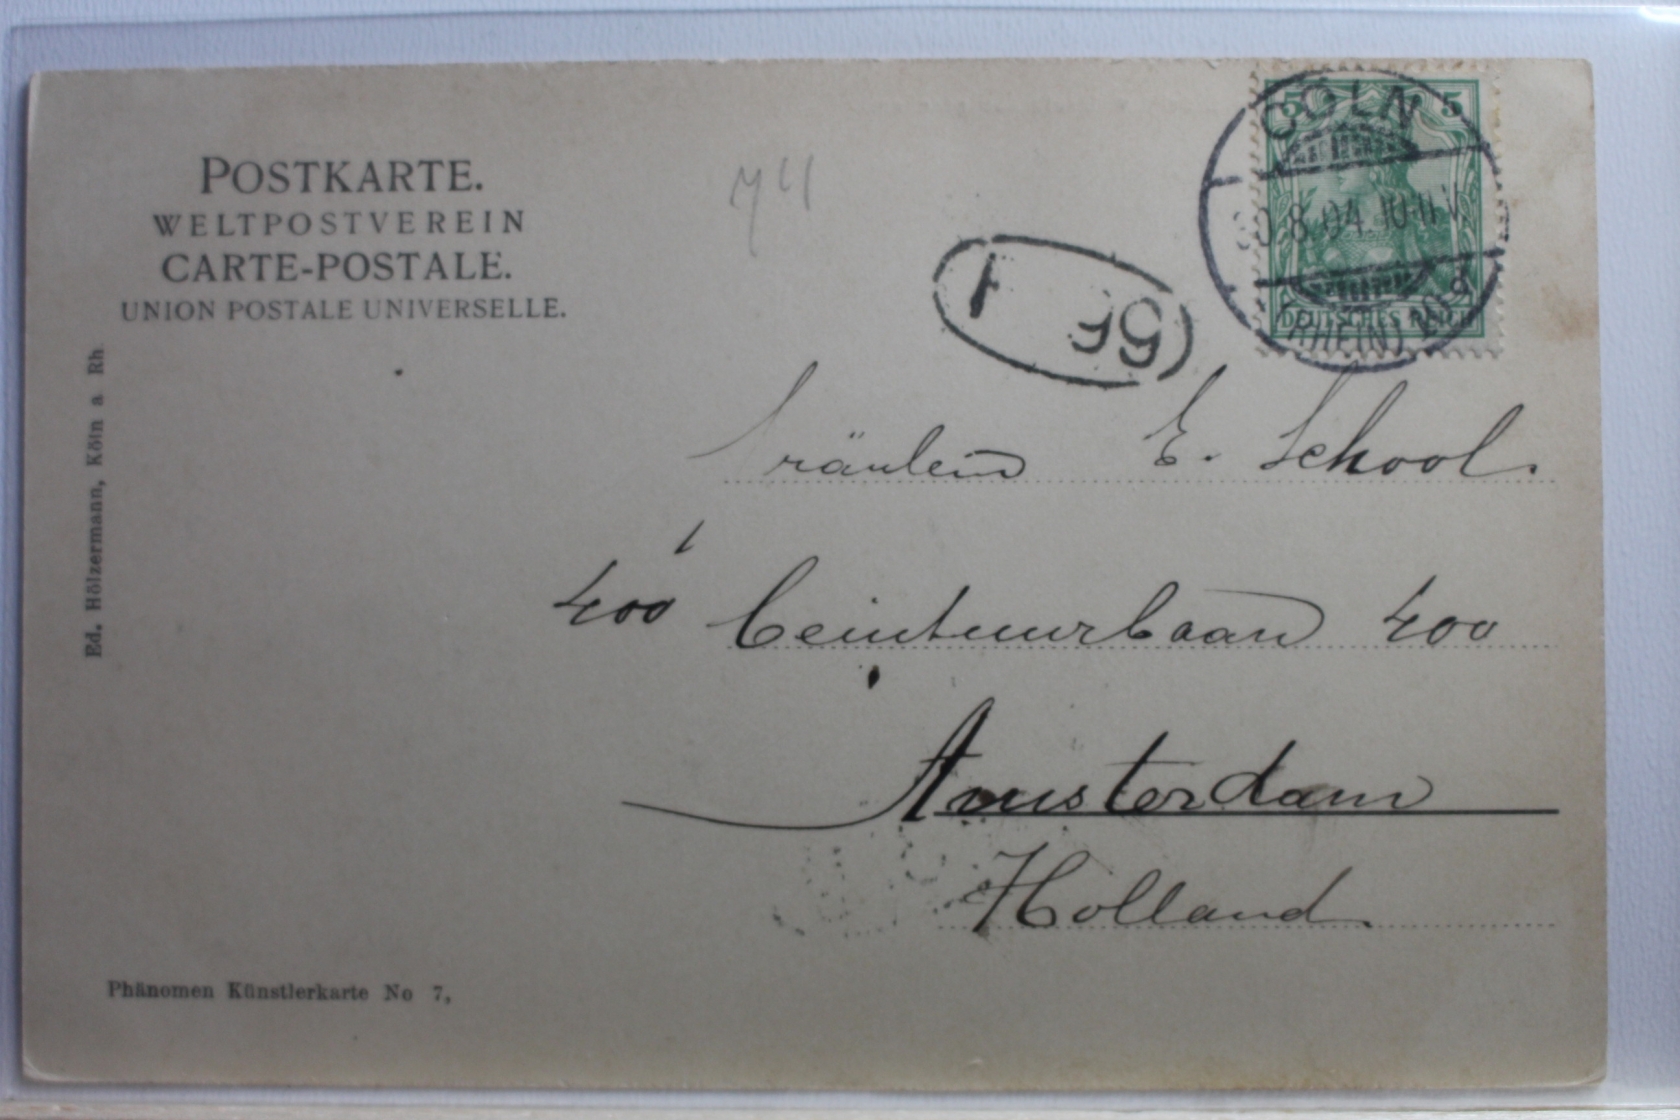 POSTKARTE.
WELTPOSTVEREIN
CARTE-POSTALE.
UNION POSTALE UNIVERSELLE.
Ed. Hölzermann, Köln a Rh
5 5
DEUTSCHES REICH
CÖLN
8.04.10-11V
(RHEIN)
Fräulein E. School.
400 Ceintuurbaan 400
Amsterdam
Holland
Phänomen Künstlerkarte No 7,